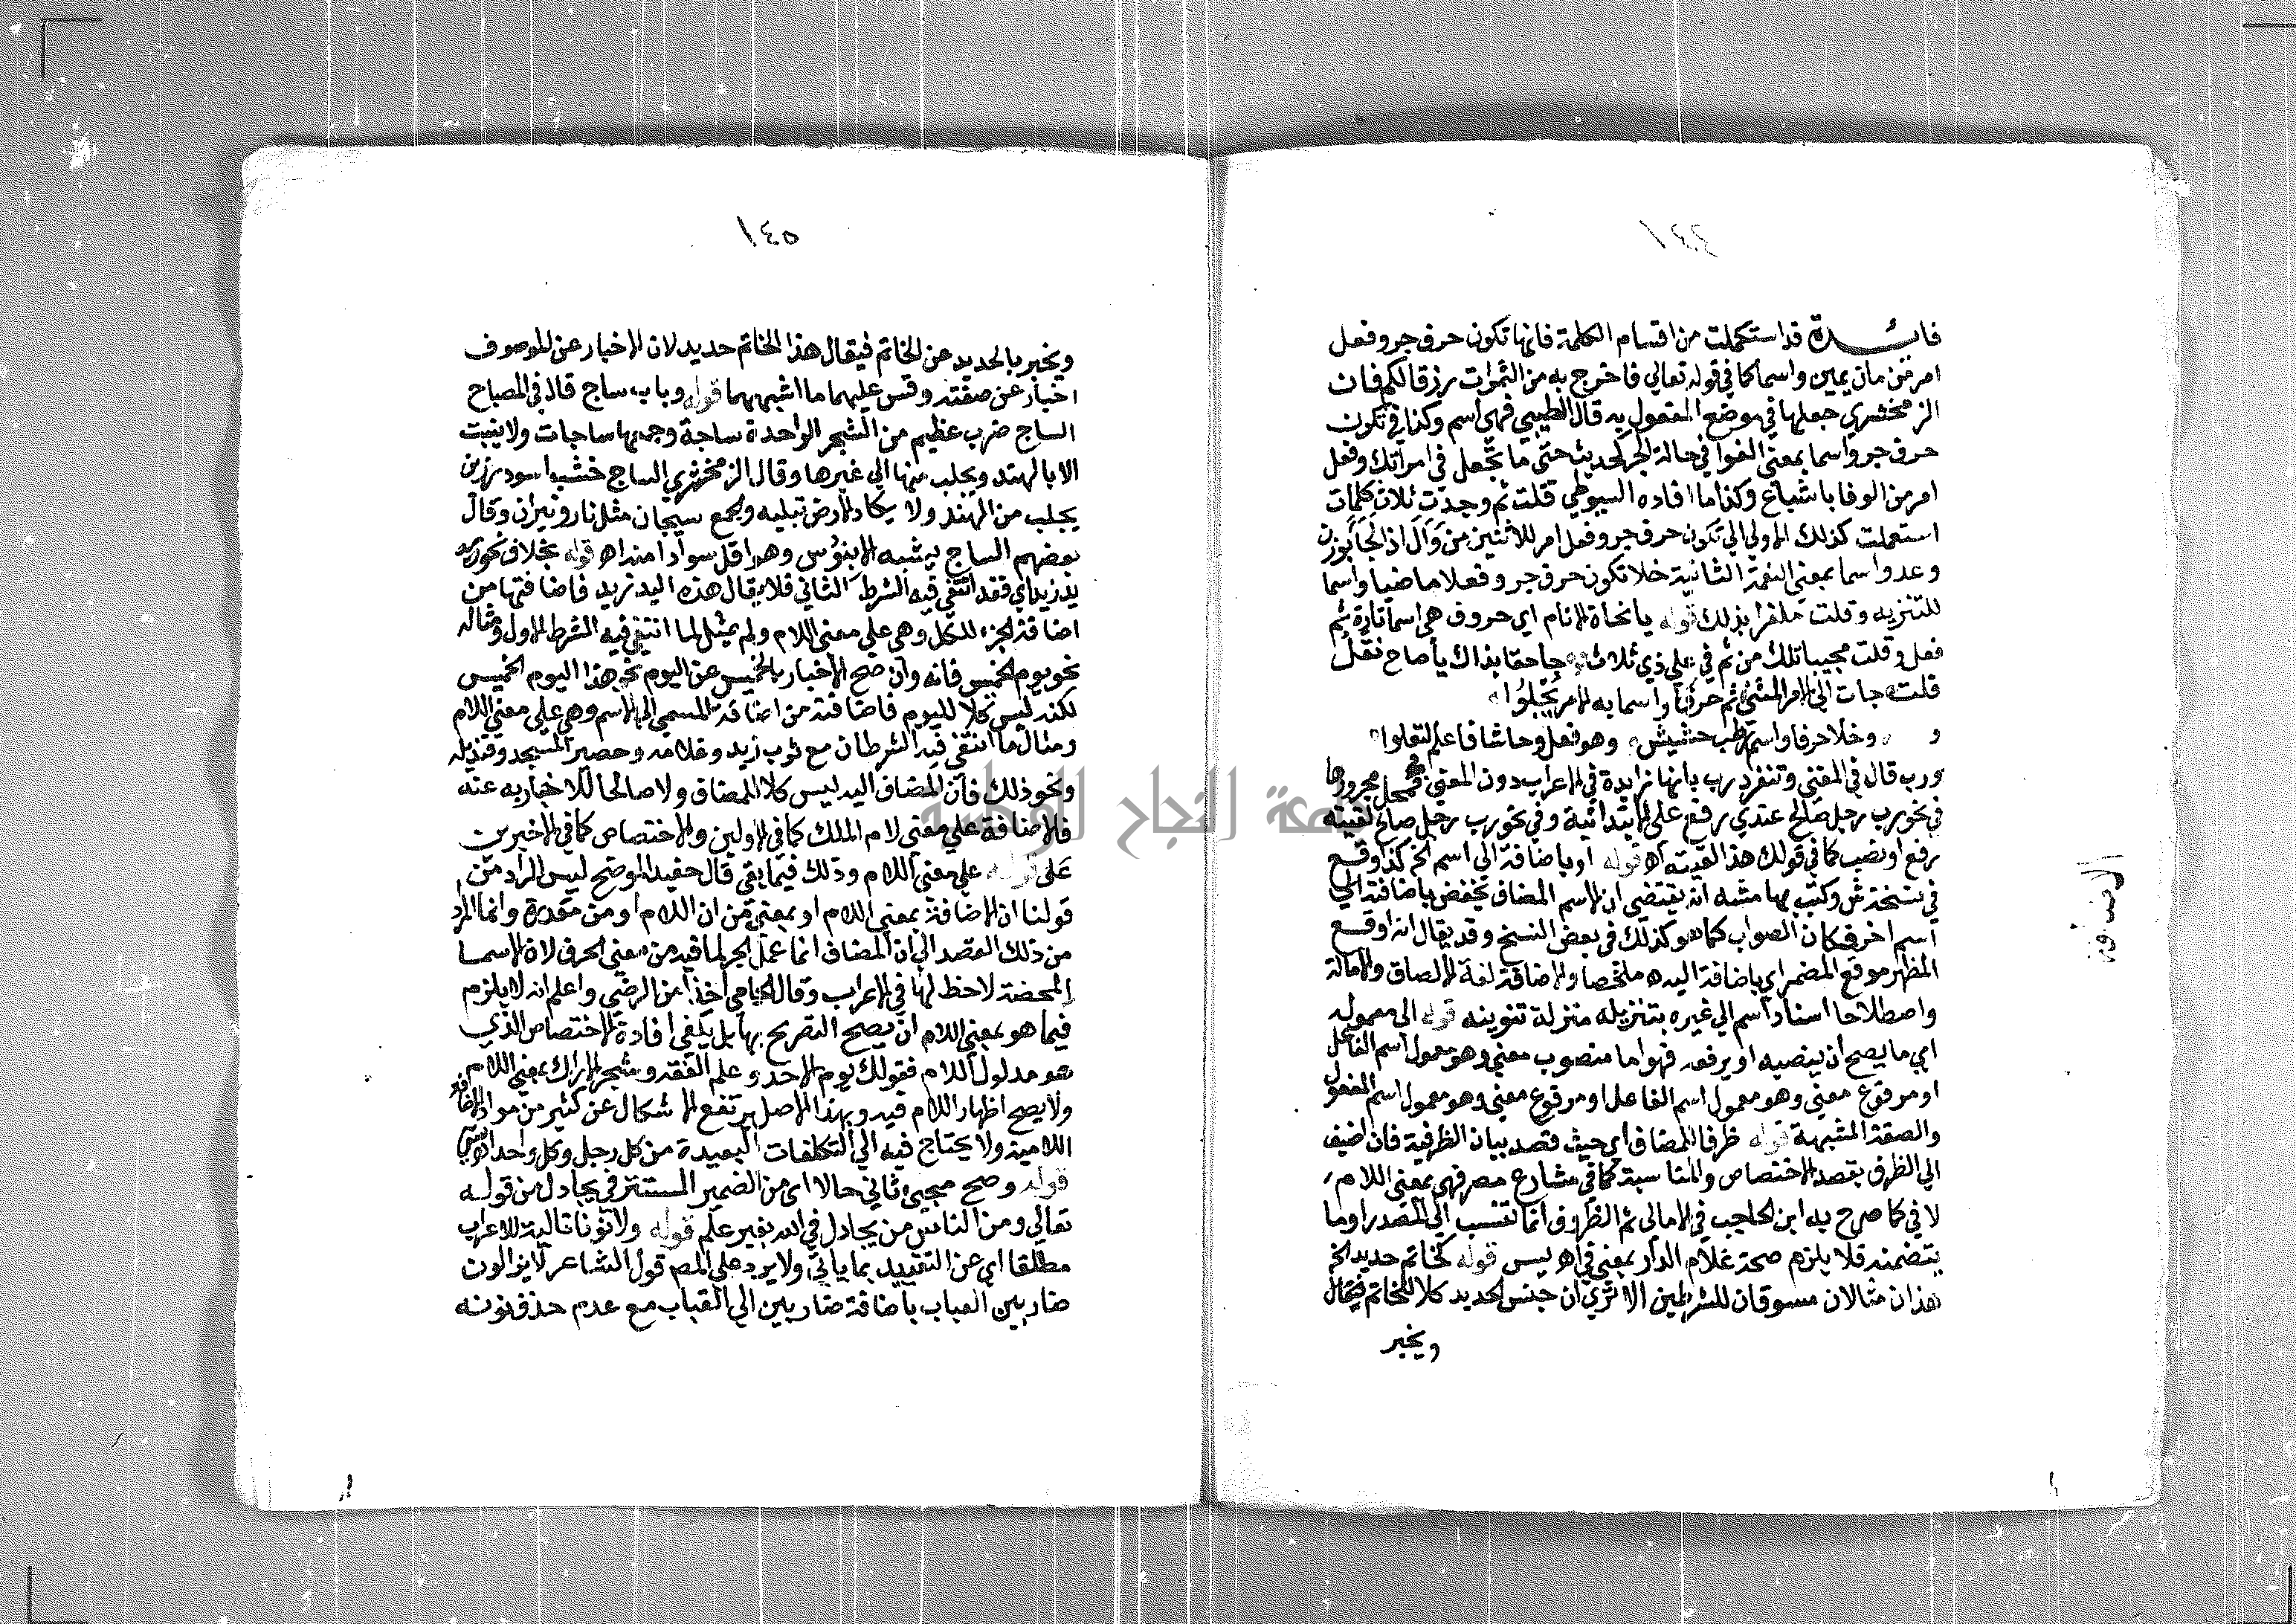 ١٤٤
فائدة قد استكملت من اقسام الكلمة فانها تكون حرف جر وفعل
امر من مان يمين واسما كما في قوله تعالي فاخرج به من الثمرات رزقا لكم فان
الزمخشري جعلها في موضع المفعول به قال الطيبي فهي اسم وكذا في تكون
حرف جر واسما بمعني الفوا في حالة الجر كحديث حتي ما تجعل في في امراتك وفعل
امر من الوفا باشباع وكذا ما افاده السيوطي قلت ثم وجدت ثلاث كلمات
استعملت كذلك الاولي الي تكون حرف جر وفعل امر للاثنين من وَأَلَ اذا لجأ بوزن
وعد واسما بمعني النعمة الثانية خلا تكون حرف جر وفعلا ماضيا واسما
للتنزيه وقلت ملغزا بذلك قوله يا نحاة الانام اي حروف هي اسما تارة ثم
فعل وقلت مجيبا تلك من ثم في علي ذي ثلاث جا حقا بذاك يا صاح نقل
قلت جات الي الامر المثني ثم حرفا واسما به الامر يُجْلوا
و وخلا حرفا واسم رطب حشيش وهو فعل وحاشا فاعلم لتعلوا
ورب قال في المغني وتنفرد رب بانها زايدة في الاعراب دون المعني فمحل مجرورها
في نحو رب رجل صالح عندي رفع علي الابتدائية وفي نحو رب رجل صالح لقيته
رفع او نصب كما في قولك هذا لقيته اه قوله او باضافة الي اسم اخر كذا وقع
في نسخة ش وكتب بها مشه انه يقتضي ان الاسم المضاف يخفض باضافته الي
اسم اخر فكان الصواب كما هو كذلك في بعض النسخ وقد يقال انه اوقع
المظهر موقع المضمر اي باضافة اليه اه ملخصا والاضافة لغة الالصاق والامالة
واصطلاحا اسناد اسم الي غيره بتنزيله منزلة تنوينه قوله الي معموله
اي ما يصح ان ينصبه او يرفعه فهو اما منصوب معني وهو معمول اسم الفاعل
او مرفوع معني وهو معمول اسم الفاعل او مرفوع معني وهو معمول اسم المفعول
والصفة المشبهة قوله ظرفا للمضاف اي حيث قصد بيان الظرفية فان اضيف
الي الظرف بقصد الاختصاص والمناسبة كما في مشارع مصر فهي بمعني اللام
لا في كما صرح به ابن الحاجب في الامالي ثم الظروف انما تنسب الي المصدر او ما
يتضمنه فلا يلزم صحة غلام الدار بمعني في اه يس قوله كخاتم حديد الخ
هذان مثالان مسوقان للشرطين الا تري ان جنس الحديد كلا للخاتم فيقال
ويخبر
١٤٥
ويخبر بالحديد عن الخاتم فيقال هذا الخاتم حديد لان الاخبار عن الموصوف
اخبار عن صفته وقس عليهما ما اشبههما قوله وباب ساج قال في المصباح
الساج ضرب عظيم من الشجر الواحدة ساجة وجمعها ساجات ولا ينبت
الا بالهند ويجلب منها الي غيرها وقال الزمخشري الساج خشب اسود رزين
يجلب من الهند ولا يكاد الارض تبليه ويجمع سيجان مثل نار ونيران وقال
بعضهم الساج يشبه الابنوس وهو اقل سوادا منه اه قوله بخلاف نحو يد
يد زيد اي فقد انتفي فيه الشرط الثاني فلا يقال هذه اليد زيد فاضافتها من
اضافة الجزء للكل وهي علي معني اللام ولم يمثل لما انتفي فيه الشرط الاول ومثاله
نحو يوم الخميس فانه وان صح الاخبار بالخميس عن اليوم نحو هذا اليوم الخميس
لكنه ليس كلا لليوم فاضافته من اضافة المسمي الي الاسم وهي علي معني اللام
ومثال ما انتفي فيه الشرطان مع ثوب زيد وغلامه وحصير المسجد وقنديله
ونحو ذلك فان المضاف اليه ليس كلا للمضاف ولا صالحا للاخبار به عنه
فالاضافة علي معني لام الملك كما في الاولين والاختصاص كما في الاخيرين
علي قوله علي معني اللام وذلك فيما بقي قال حفيد الموضح ليس المراد من
قولنا ان الاضافة بمعني اللام او بمعني من ان اللام او من مقدرة وانما المراد
من ذلك القصد الي ان المضاف انما عمل الجر لما فيه من معني الحرف لان الاسما
المحضة لا حظ لها في الاعراب وقال الجامي اخذا من الرضي واعلم انه لا يلزم
فيما هو بمعني اللام ان يصح التصريح بها بل يكفي افادة الاختصاص الذي
هو مدلول اللام فقولك يوم الاحد وعلم الفقه وشجر الاراك بمعني اللام
ولا يصح اظهار اللام فيه وبهذا الاصل يرتفع الاشكال عن كثير من مواد الاضافة
اللامية ولا يحتاج فيه الي التكلفات البعيدة من كل رجل وكل واحد انتهي
قوله وصح مجيئ ثاني حالا اي من الضمير المستتر في يجادل من قوله
تعالي ومن الناس من يجادل في الله بغير علم قوله ولا نونا تالية للاعراب
مطلقا اي عن التقييد بما ياتي ولا يرد علي المص قول الشاعر لا يزالون
ضاربين القباب باضافة ضاربين الي القباب مع عدم حذف نونه